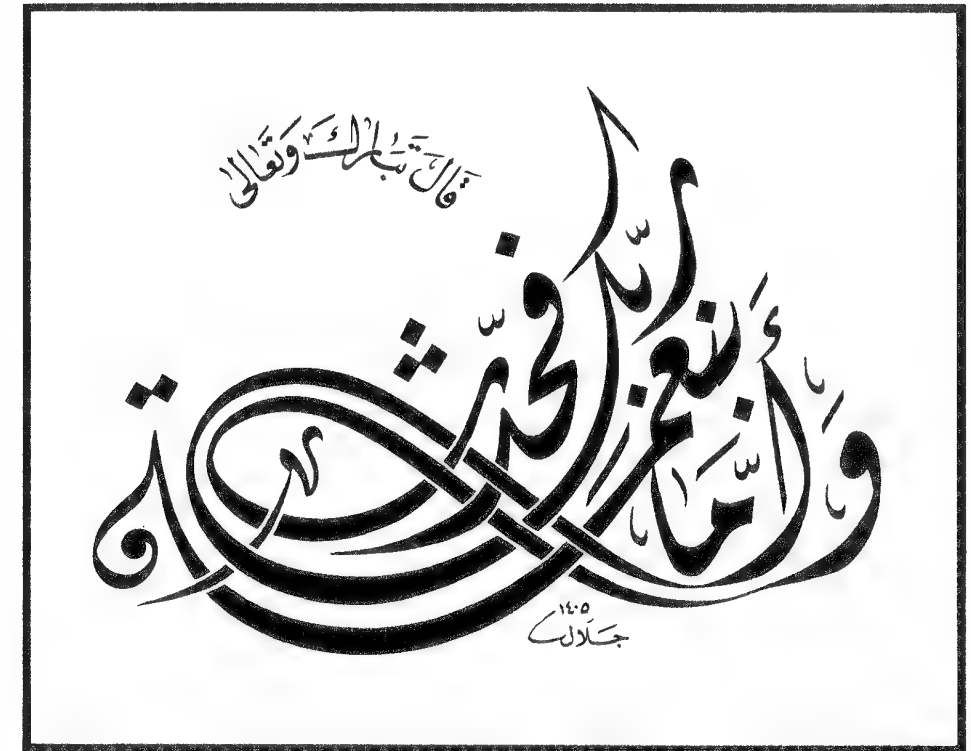 قَالَ تَبَارَكَ وَتَعَالَى
وَأَمَّا بِنِعْمَةِ رَبِّكَ فَحَدِّثْ
١٤٠٥
جلال